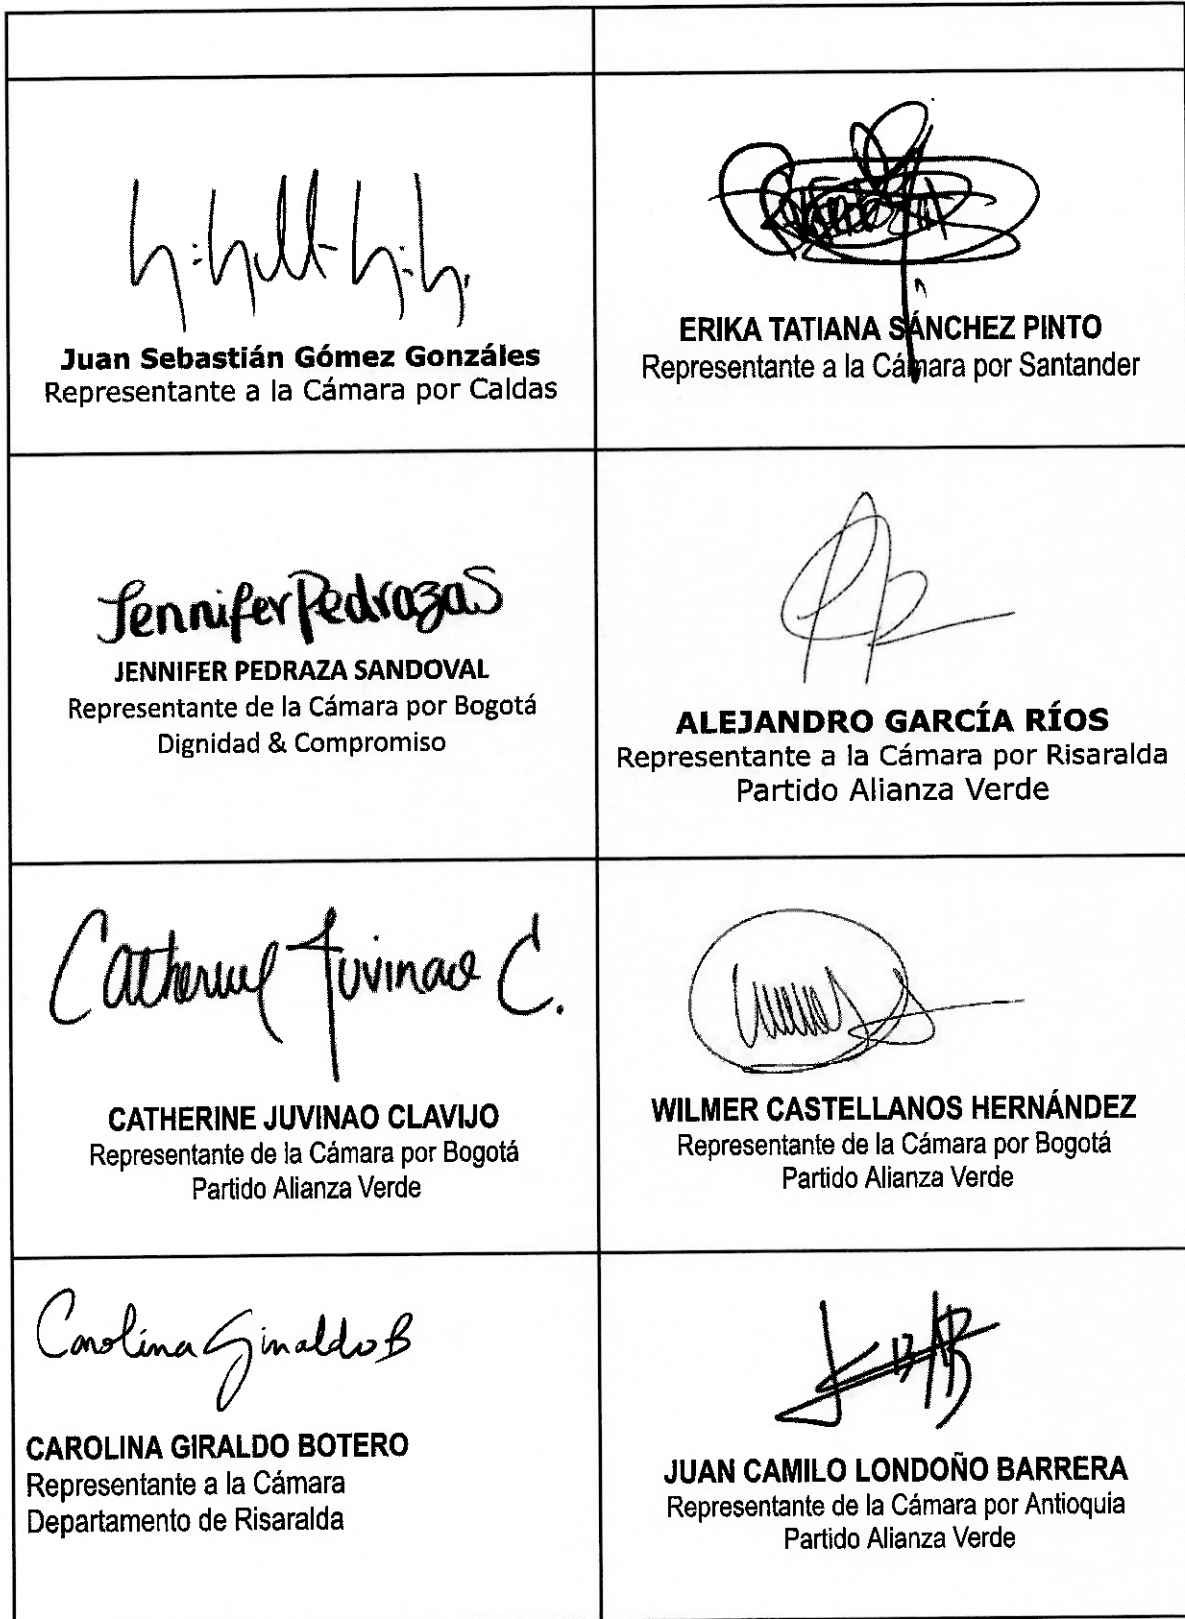 Juan Sebastián Gómez Gonzáles
Representante a la Cámara por Caldas
ERIKA TATIANA SÁNCHEZ PINTO
Representante a la Cámara por Santander
Jennifer Pedraza S
JENNIFER PEDRAZA SANDOVAL
Representante de la Cámara por Bogotá
Dignidad & Compromiso
ALEJANDRO GARCÍA RÍOS
Representante a la Cámara por Risaralda
Partido Alianza Verde
Catherine Juvinao C.
CATHERINE JUVINAO CLAVIJO
Representante de la Cámara por Bogotá
Partido Alianza Verde
WILMER CASTELLANOS HERNÁNDEZ
Representante de la Cámara por Bogotá
Partido Alianza Verde
Carolina Giraldo B
CAROLINA GIRALDO BOTERO
Representante a la Cámara
Departamento de Risaralda
JUAN CAMILO LONDOÑO BARRERA
Representante de la Cámara por Antioquia
Partido Alianza Verde